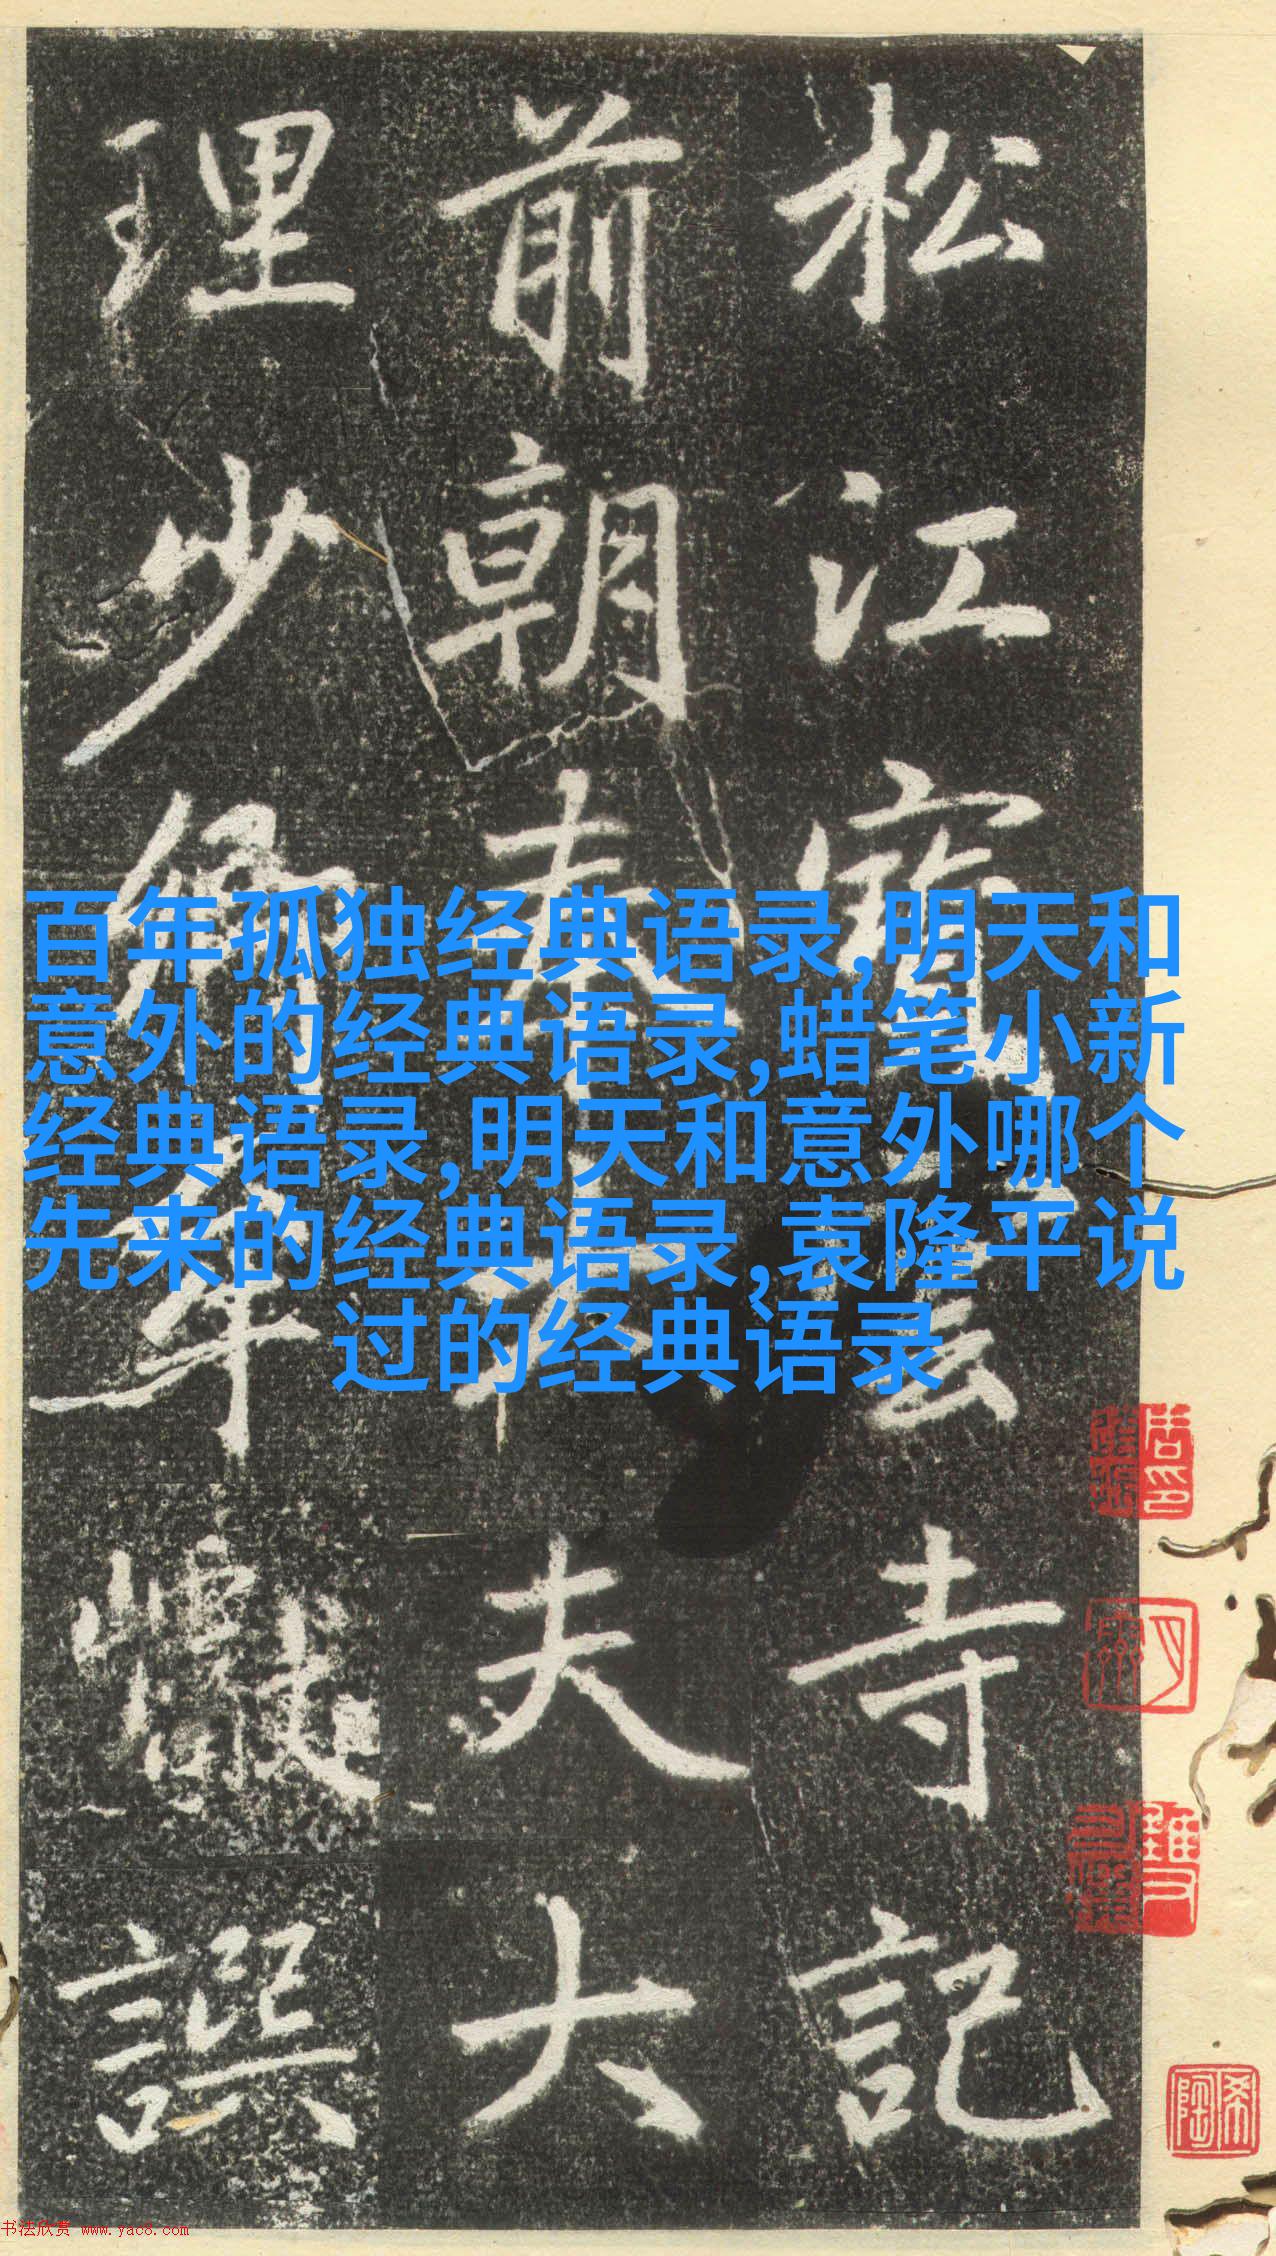 松江寶雲寺記
前朝奉大夫大
理少卿牟譔
百年孤独经典语录,明天和
意外的经典语录,蜡笔小新
经典语录,明天和意外哪个
先来的经典语录,袁隆平说
过的经典语录
希陶
书法欣赏 www.yac8.com